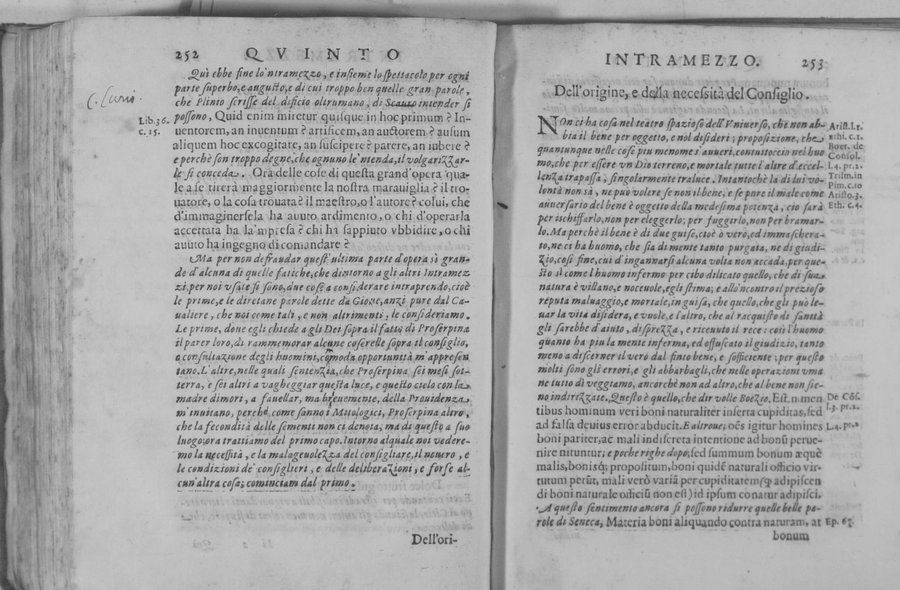 252 QVINTO
Quì ebbe fine lo'ntramezzo, e insieme lo spettacolo per ogni
parte superbo, e augusto, e di cui troppo ben quelle gran parole,
che Plinto scrisse del dificio oltrumano, di Scauro intender si
possono, Quid enim miretur quisque in hoc primum? In-
uentorem, an inuentum? artificem, an auctorem? ausum
aliquem hoc excogitare, an suscipere? parere, an iubere?
e perchè son troppo degne, che ognuno le'ntenda, il volgarizzar-
le si conceda. Ora delle cose di questa grand'opera qua-
le a se tirerà maggiormente la nostra marauiglia? il tro-
uatore, o la cosa trouata? il maestro, o l'autore? colui, che
d'immaginersela ha auuto ardimento, o chi d'operarla
accertata ha la'mpresa? chi ha sappiuto vbbidire, o chi
auuto ha ingegno di comandare?
Ma per non defraudar quest'ultima parte d'opera sì gran-
de d'alcuna di quelle fatiche, che dintorno a gli altri Intramez
zi, per noi vsate si sono, due cose a considerare intraprendo, cioè
le prime, e le diretane parole dette da Gioue, anzi pure dal Ca-
ualiere, che noi come tali, e non altrimenti, le consideriamo.
Le prime, doue egli chiede a gli Dei sopra il fatto di Proserpina
il parer loro, di rammemorar alcune coserelle sopra il consiglio,
o consultazione degli huomini, cõmoda opportunità m'appresen
tano. L'altre, nelle quali sentenzia, che Proserpina sei mesi sot-
terra, e sei altri a vagheggiar questa luce, e questo cielo con la
madre dimori, a fauellar, ma breuemente, della Prouidenza
m'inuitano, perchè come sanno i Mitologici, Proserpina altro,
che la fecondità delle sementi non ci denota, ma di questo a suo
luogo, ora trattiamo del primo capo. Intorno al quale noi vedere-
mo la necessità, e la malageuolezza del consigliare, il nouero, e
le condizioni de' consiglieri, e delle deliberazioni, e forse al-
cun'altra cosa; cominciam dal primo.
Dell'ori-
Lib. 36.
c. 15.
INTRAMEZZO. 253
Dell'origine, e della necessità del Consiglio.
NOn ci ha cosa nel teatro spazioso dell'Vniuerso, che non ab-
bia il bene per oggetto, e nol disideri; proposizione, che
quantunque nelle cose piu menome s'auueri, contuttociò nel huo
mo, che per essere vn Dio terreno, e mortale tutte l'altre d'eccel-
lenza trapassa, singolarmente traluce. Intantochè la di lui vo-
lontà non sà, ne può volere se non il bene, e se pure il male come
auuersario del bene è oggetto della medesima potenza, ciò sarà
per ischiffarlo, non per eleggerlo; per fuggirlo, non per bramar-
lo. Ma perchè il bene è di due guise, cioè o verò, ed immaschera-
to, ne ci ha huomo, che sia di mente tanto purgata, ne di giudi-
zio, così fine, cui d'ingannarsi alcuna volta non accada, per que-
sto sì come l'huomo infermo per cibo dilicato quello, che di sua
natura è villano, e noceuole, egli stima; e allo'ncontro il prezioso
reputa maluaggio, e mortale, in guisa, che quello, che gli può le-
uar la vita disidera, e vuole, e l'altro, che al racquisto di sanità
gli sarebbe d'aiuto, disprezza, e riceuuto il rece: così l'huomo
quanto ha piu la mente inferma, ed offuscato il giudizio, tanto
meno a discerner il vero dal finto bene, è sofficiente; per questo
molti sono gli errori, e gli abbarbagli, che nelle operazioni vma
ne tutto dì veggiamo, ancorchè non ad altro, che al bene non sie-
no indirizzate. Questo è quello, che dir volle Boezio. Est. n. men
tibus hominum veri boni naturaliter inserta cupiditas, sed
ad falsa deuius error abducit. E altroue; oẽs igitur homines
boni pariter, ac mali indiscreta intentione ad bonũ perue-
nire nituntur; e poche righe dopo, sed summum bonum æque
malis, bonisq; propositum, boni quidẽ naturali officio vir-
tutum petũt, mali verò varia per cupiditatem, q̃ adipiscen
di boni naturale officiũ non est) id ipsum conatur adipisci.
A questo sentimento ancora si possono ridurre quelle belle pa-
role di Seneca, Materia boni aliquando contra naturam, at
bonum
Boet. de
Consol.
L. 4. pr. 2.
Trism. in
Pim. c. 10
Aristo. 3.
Eth. c. 4.
De Cõs.
l. 3. pr. 2.
L. 4. pr. 2
Ep. 67.